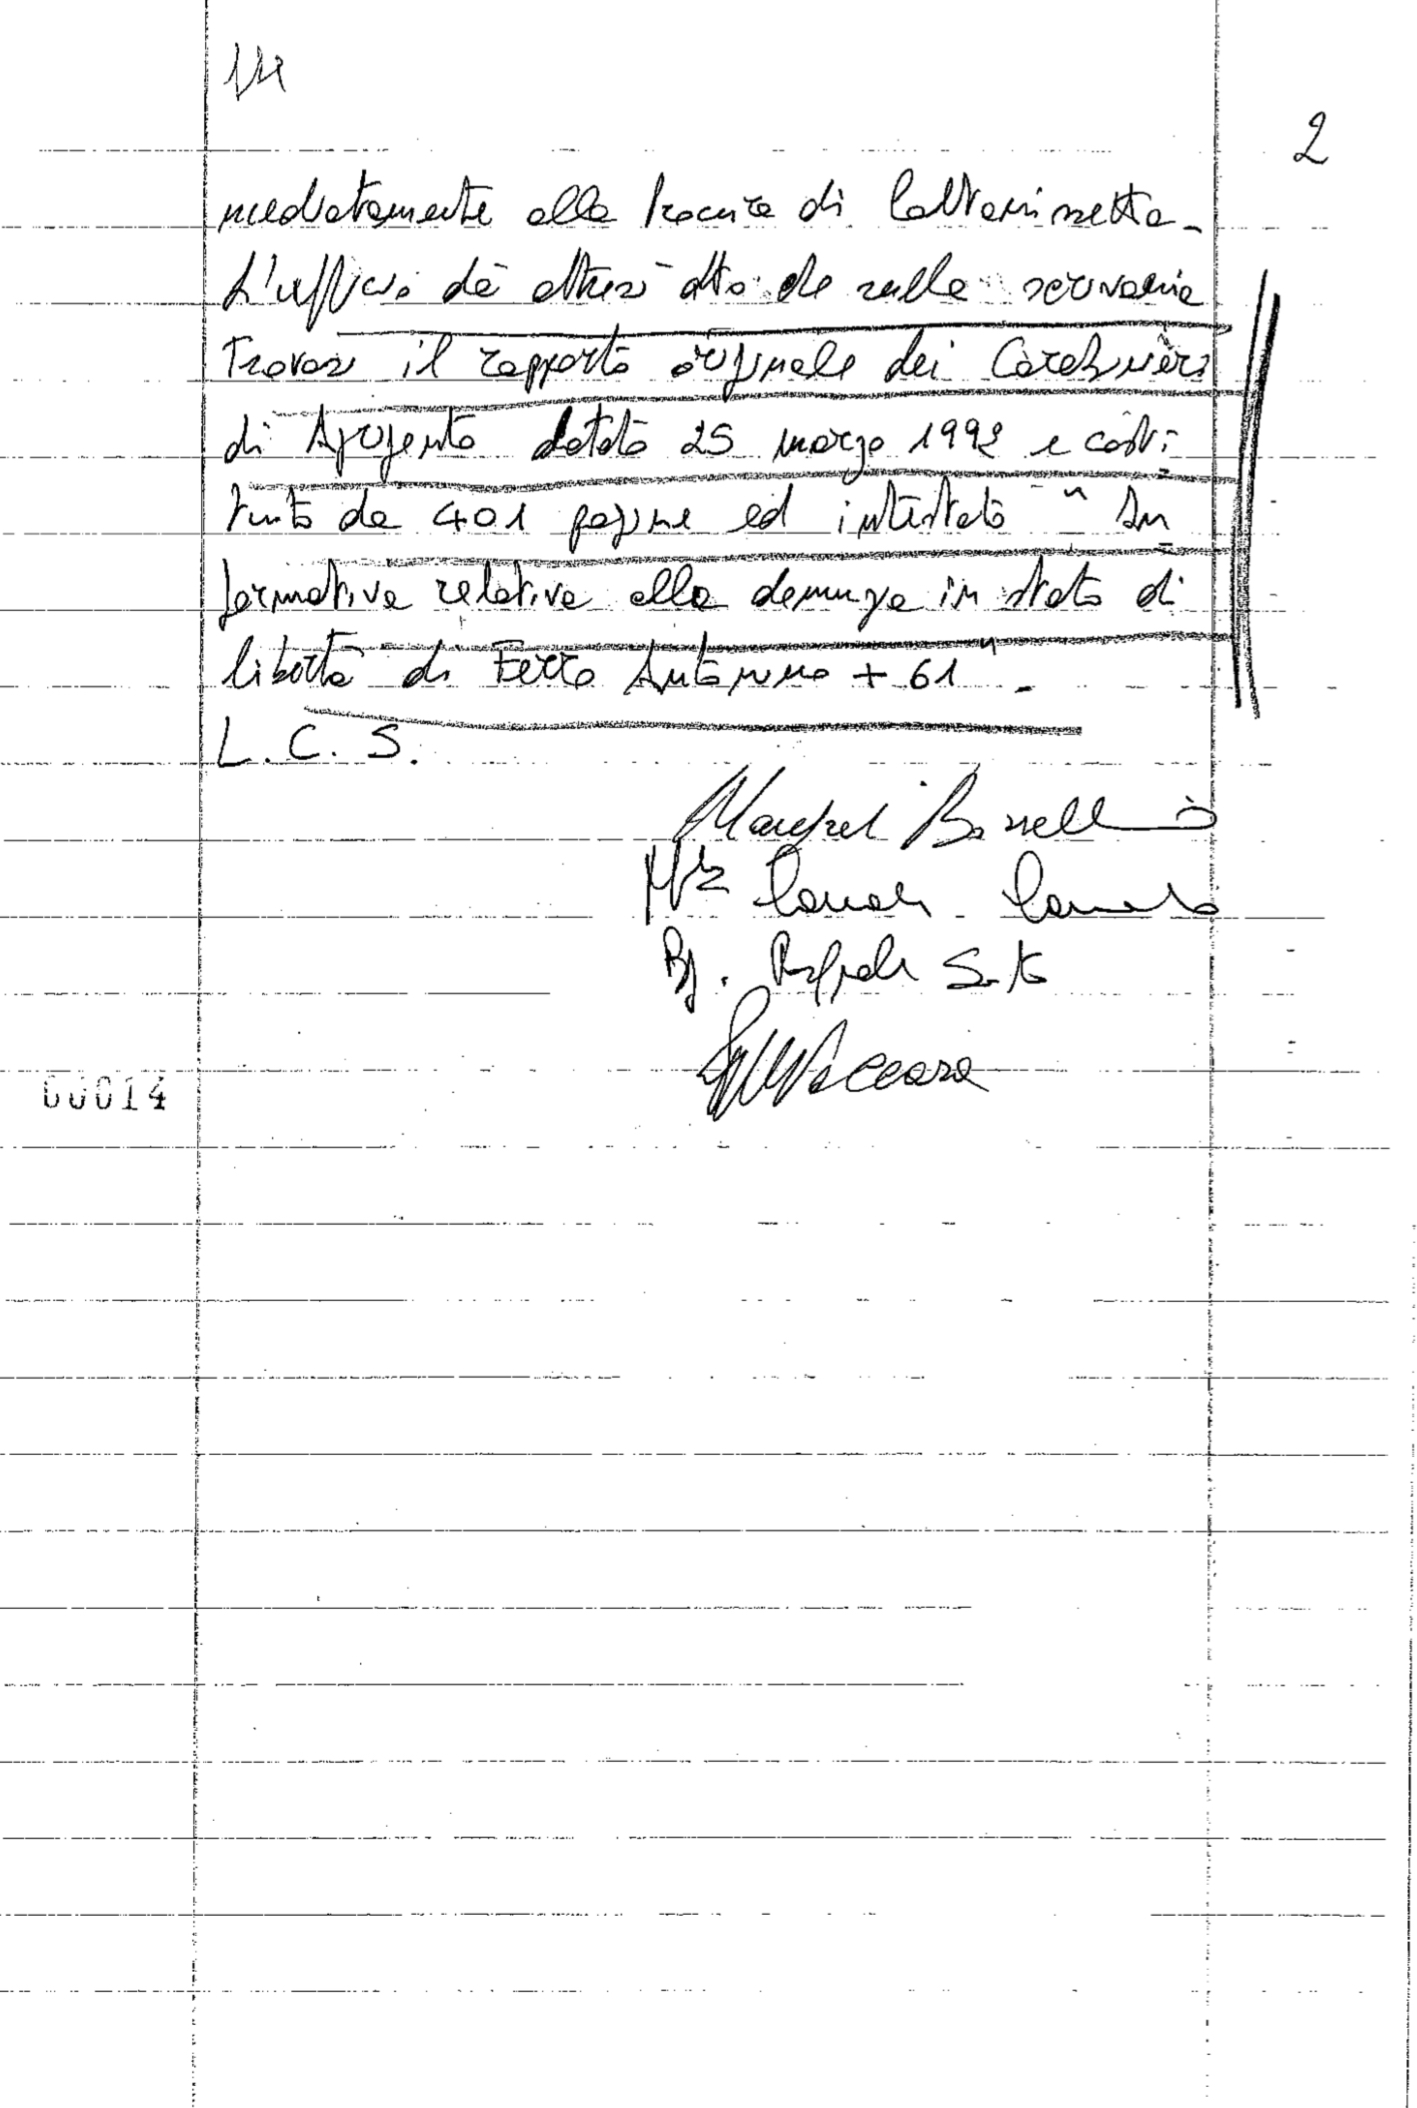 2
mediatamente alla Procura di Caltanissetta -
L'ufficio dà altresì atto che sulla scrivania
trovasi il rapporto originale dei Carabinieri
di Agrigento datato 25 marzo 1992 e costi=
tuito da 401 pagine ed intestato " In=
formativa relativa alla denunzia in stato di
libertà di Ferro Antonino + 61" -
L. C. S.
Borsellino
Canale Carmelo
Vaccara
00014